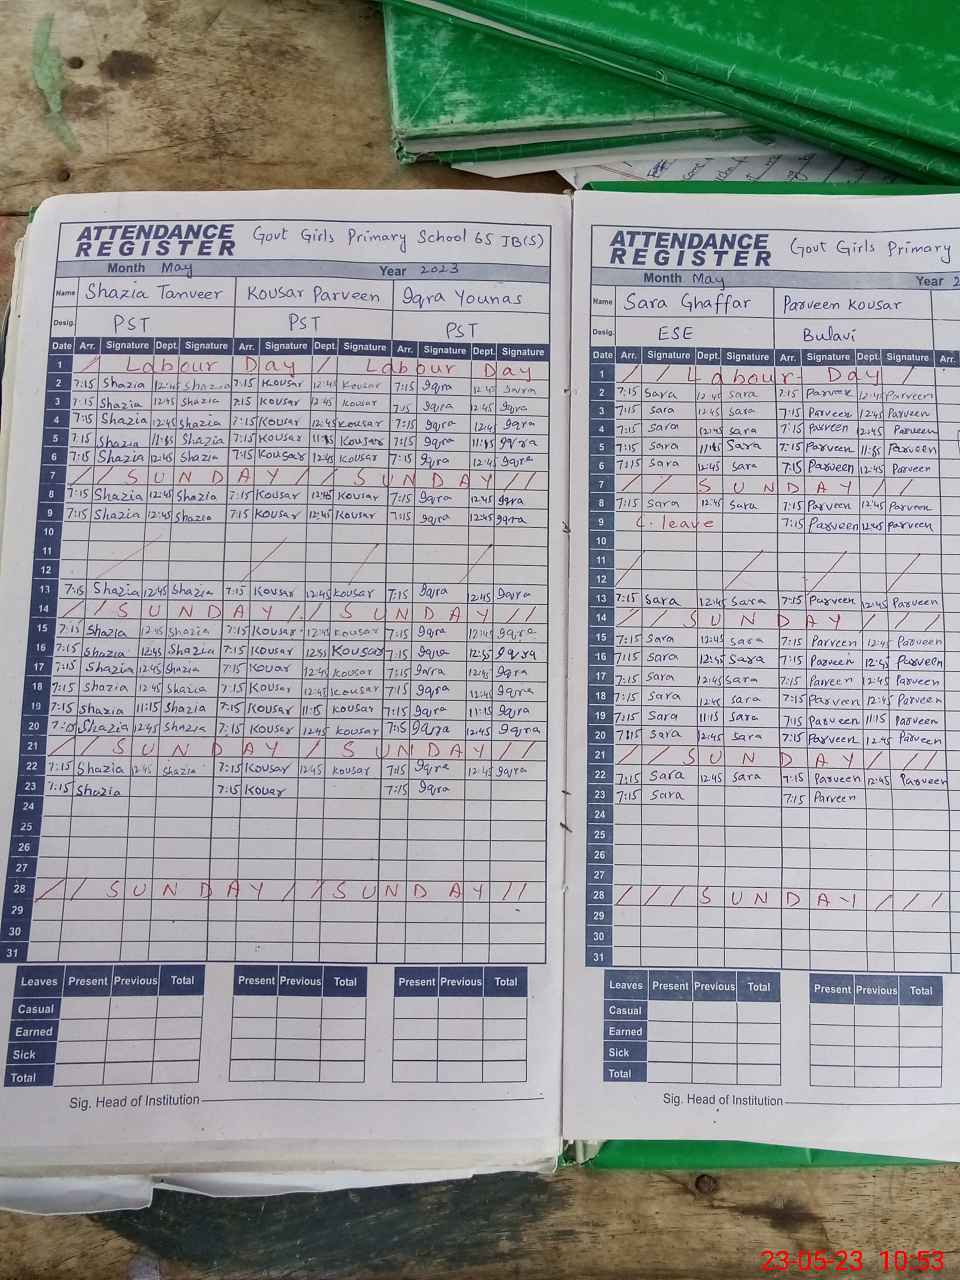 ATTENDANCE REGISTER Govt Girls Primary School 65 JB(S)
Month May Year 2023
Name Shazia Tanveer Kousar Parveen Iqra Younas
Desig. PST PST PST
Date Arr. Signature Dept. Signature Arr. Signature Dept. Signature Arr. Signature Dept. Signature
1 / Labour Day / Labour Day
2 7:15 Shazia 12:45 Shazia 7:15 Kousar 12:45 Kousar 7:15 Iqra 12:45 Iqra
3 7:15 Shazia 12:45 Shazia 7:15 Kousar 12:45 Kousar 7:15 Iqra 12:45 Iqra
4 7:15 Shazia 12:45 Shazia 7:15 Kousar 12:45 Kousar 7:15 Iqra 12:45 Iqra
5 7:15 Shazia 11:45 Shazia 7:15 Kousar 11:45 Kousar 7:15 Iqra 11:45 Iqra
6 7:15 Shazia 12:45 Shazia 7:15 Kousar 12:45 Kousar 7:15 Iqra 12:45 Iqra
7 / / SUNDAY / / SUNDAY / /
8 7:15 Shazia 12:45 Shazia 7:15 Kousar 12:45 Kousar 7:15 Iqra 12:45 Iqra
9 7:15 Shazia 12:45 Shazia 7:15 Kousar 12:45 Kousar 7:15 Iqra 12:45 Iqra
10
11
12
13 7:15 Shazia 12:45 Shazia 7:15 Kousar 12:45 Kousar 7:15 Iqra 12:45 Iqra
14 / / SUNDAY / / SUNDAY / /
15 7:15 Shazia 12:45 Shazia 7:15 Kousar 12:45 Kousar 7:15 Iqra 12:45 Iqra
16 7:15 Shazia 12:45 Shazia 7:15 Kousar 12:45 Kousar 7:15 Iqra 12:45 Iqra
17 7:15 Shazia 12:45 Shazia 7:15 Kouar 12:45 Kousar 7:15 Iqra 12:45 Iqra
18 7:15 Shazia 12:45 Shazia 7:15 Kousar 12:45 Kousar 7:15 Iqra 12:45 Iqra
19 7:15 Shazia 11:15 Shazia 7:15 Kousar 11:15 Kousar 7:15 Iqra 11:15 Iqra
20 Shazia 12:45 Shazia 7:15 Kousar 12:45 Kousar 7:15 Iqra 12:45 Iqra
21 / / SUNDAY / / SUNDAY / /
22 7:15 Shazia 12:45 Shazia 7:15 Kousar 12:45 Kousar 7:15 Iqra 12:45 Iqra
23 7:15 Shazia 7:15 Kouar 7:15 Iqra
24
25
26
27
28 / / SUNDAY / / SUNDAY / /
29
30
31
Leaves Present Previous Total Present Previous Total Present Previous Total
Casual
Earned
Sick
Total
Sig. Head of Institution
ATTENDANCE REGISTER Govt Girls Primary
Month May Year 2
Name Sara Ghaffar Parveen Kousar
Desig. ESE Bulavi
Date Arr. Signature Dept. Signature Arr. Signature Dept. Signature Arr.
1 / / Labour Day / /
2 7:15 Sara 12:45 Sara 7:15 Parveen 12:45 Parveen
3 7:15 Sara 12:45 Sara 7:15 Parveen 12:45 Parveen
4 7:15 Sara 12:45 Sara 7:15 Parveen 12:45 Parveen
5 7:15 Sara 11:45 Sara 7:15 Parveen 11:45 Parveen
6 7:15 Sara 12:45 Sara 7:15 Parveen 12:45 Parveen
7 / / / SUNDAY / /
8 7:15 Sara 12:45 Sara 7:15 Parveen 12:45 Parveen
9 C. leave 7:15 Parveen 12:45 Parveen
10
11
12
13 7:15 Sara 12:45 Sara 7:15 Parveen 12:45 Parveen
14 / / / SUNDAY / /
15 7:15 Sara 12:45 Sara 7:15 Parveen 12:45 Parveen
16 7:15 Sara 12:45 Sara 7:15 Parveen 12:45 Parveen
17 7:15 Sara 12:45 Sara 7:15 Parveen 12:45 Parveen
18 7:15 Sara 12:45 Sara 7:15 Parveen 12:45 Parveen
19 7:15 Sara 11:15 Sara 7:15 Parveen 11:15 Parveen
20 7:15 Sara 12:45 Sara 7:15 Parveen 12:45 Parveen
21 / / / SUNDAY / / /
22 7:15 Sara 12:45 Sara 7:15 Parveen 12:45 Parveen
23 7:15 Sara 7:15 Parveen
24
25
26
27
28 / / / SUNDAY / / /
29
30
31
Leaves Present Previous Total Present Previous Total
Casual
Earned
Sick
Total
Sig. Head of Institution
23-05-23 10:53